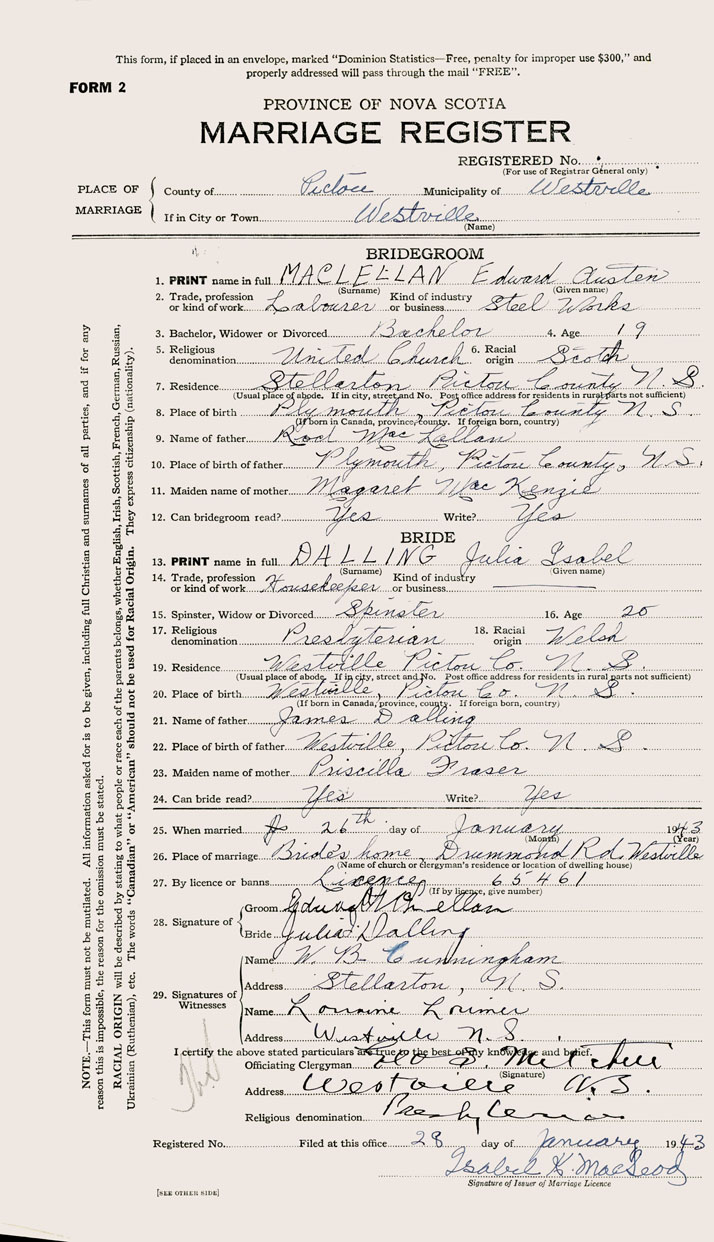 This form, if placed in an envelope, marked “Dominion Statistics—Free, penalty for improper use $300,” and
properly addressed will pass through the mail “FREE”.
FORM 2
PROVINCE OF NOVA SCOTIA
MARRIAGE REGISTER
REGISTERED No.
(For use of Registrar General only)
PLACE OF MARRIAGE
County of Pictou Municipality of Westville
If in City or Town Westville
(Name)
BRIDEGROOM
1. PRINT name in full MACLELLAN Edward Austen
(Surname) (Given name)
2. Trade, profession or kind of work Labourer Kind of industry or business Steel Works
3. Bachelor, Widower or Divorced Bachelor 4. Age 19
5. Religious denomination United Church 6. Racial origin Scotch
7. Residence Stellarton Pictou County N.S.
(Usual place of abode. If in city, street and No. Post office address for residents in rural parts not sufficient)
8. Place of birth Plymouth, Pictou County N.S.
(If born in Canada, province, county. If foreign born, country)
9. Name of father Rod MacLellan
10. Place of birth of father Plymouth, Pictou County, N.S.
11. Maiden name of mother Magaret MacKenzie
12. Can bridegroom read? Yes Write? Yes
BRIDE
13. PRINT name in full DALLING Julia Isabel
(Surname) (Given name)
14. Trade, profession or kind of work Housekeeper Kind of industry or business
15. Spinster, Widow or Divorced Spinster 16. Age 20
17. Religious denomination Presbyterian 18. Racial origin Welsh
19. Residence Westville Pictou Co. N.S.
(Usual place of abode. If in city, street and No. Post office address for residents in rural parts not sufficient)
20. Place of birth Westville, Pictou Co. N.S.
(If born in Canada, province, county. If foreign born, country)
21. Name of father James Dalling
22. Place of birth of father Westville, Pictou Co. N.S.
23. Maiden name of mother Priscilla Fraser
24. Can bride read? Yes Write? Yes
25. When married 26th day of January 1943
(Month) (Year)
26. Place of marriage Bride's home, Drummond Rd. Westville
(Name of church or clergyman's residence or location of dwelling house)
27. By licence or banns Licence 65461
(If by licence, give number)
28. Signature of
Groom
Bride Julia Dalling
29. Signatures of Witnesses
Name W. B. Cunningham
Address Stellarton, N.S.
Name Lorraine Lorimer
Address Westville N.S.
I certify the above stated particulars are true to the best of my knowledge and belief.
Officiating Clergyman Mitchell
(Signature)
Address Westville N.S.
Religious denomination Presbyterian
Registered No. Filed at this office 28 day of January 1943
Isabel K. MacLeod
Signature of Issuer of Marriage Licence
[SEE OTHER SIDE]
NOTE.—This form must not be mutilated. All information asked for is to be given, including full Christian and surnames of all parties, and if for any
reason this is impossible, the reason for the omission must be stated.
RACIAL ORIGIN will be described by stating to what people or race each of the parents belongs, whether English, Irish, Scottish, French, German, Russian,
Ukrainian (Ruthenian), etc. The words “Canadian” or “American” should not be used for Racial Origin. They express citizenship (nationality).